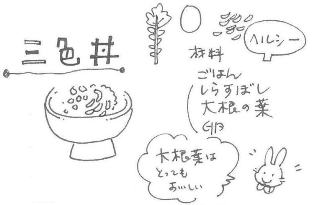 三色丼
ヘルシー
材料
ごはん
しらすぼし
大根の葉
卵
大根葉は
とっても
おいしい